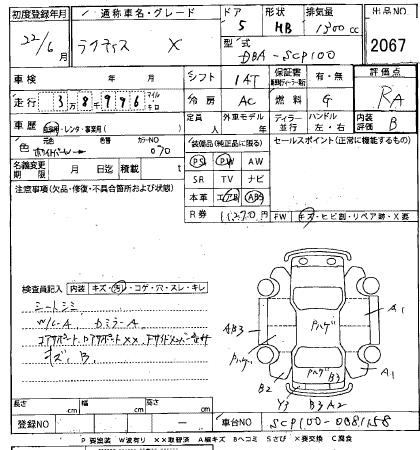 初度登録年月 通称車名・グレード ドア 形状 排気量 出品NO
22/6月 ラクティス X 5 HB 1300 cc
型式 DBA-SCP100 2067
車検 年 月 シフト IAT 保証書 有・無 評価点
走行 3万8千996 マイル キロ 冷房 AC 燃料 G RA
車歴 自家用・レンタ・事業用( ) 定員 人 外車モデル 年 ディーラー 並行 ハンドル 左・右 内装評価 B
色 元色 色替 カラーNO 070 装備品(純正品に限る) セールスポイント(正常に機能するもの)
名義変更期限 月 日迄 積載 t PS PW AW
注意事項(欠品・修復・不具合箇所および状態) SR TV ナビ
本革 エアB ABS
R券 11270円 FW キズ・ヒビ割・リペア跡・X要
検査員記入 内装 キズ・汚れ・コゲ・穴・スレ・キレ
シートシミ
キズ、B
Pハゲ A1
AB3 Pハゲ
PハゲB3 A1
B2 Y3 B3 A2
長さ cm 幅 cm 高さ cm
登録NO 車台NO SCP100-0081158
P要塗装 W波有り XX取替済 A線キズ Bヘコミ Sさび X要交換 C腐食